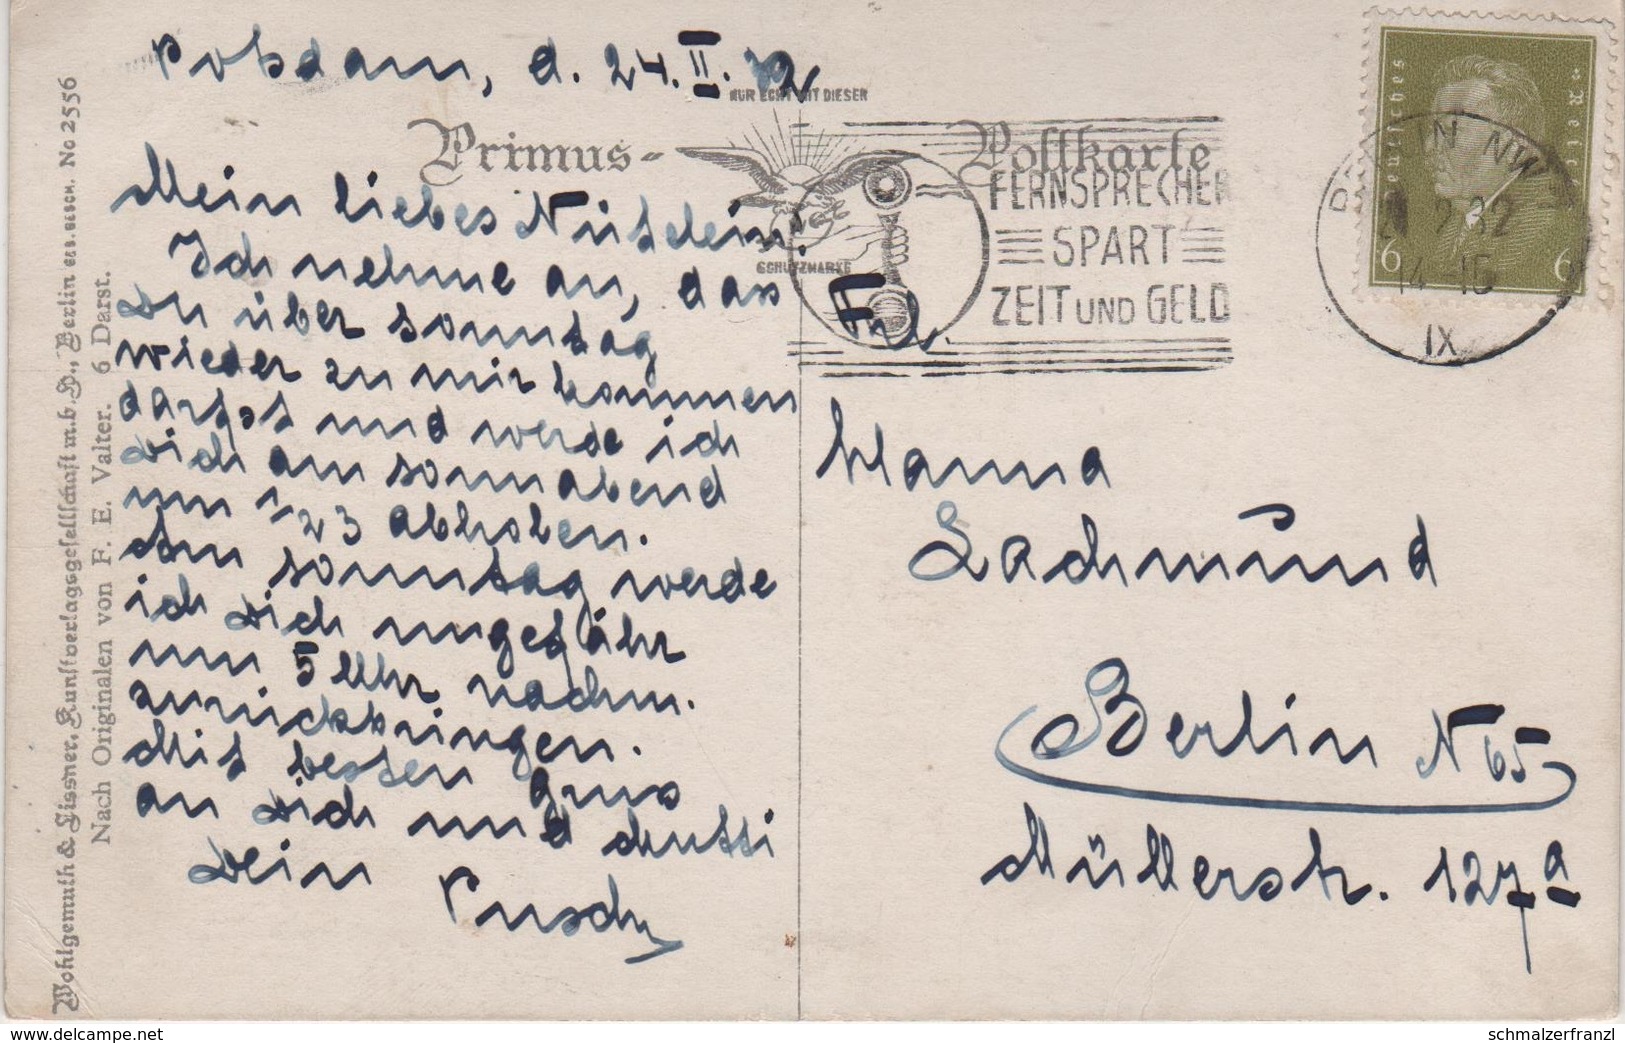 Potsdam, d. 24. II. 32
NUR ECHT MIT DIESER
SCHUTZMARKE
Primus-Postkarte
Mein liebes Nutzlein!
Ich nehme an, dass
Du über sonntag
wieder zu mir kommen
darfst und werde ich
Dich am sonnabend
um 1/2 3 abholen.
Am sonntag werde
ich Dich ungefähr
um 5 Uhr nachm.
zurückbringen.
Mit besten Gruss
an Dich und Mutti
Dein
FERNSPRECHER
SPART
ZEIT UND GELD
BERLIN NW
2.32
IX
Deutsches Reich
6 6
Frl.
Hanna
Lachmund
Berlin N 65
Müllerstr. 127a
Wohlgemuth & Lissner, Kunstverlagsgesellschaft m.b.H., Berlin No 2556
Nach Originalen von F. E. Valter. 6 Darst.
www.delcampe.net
schmalzerfranzl